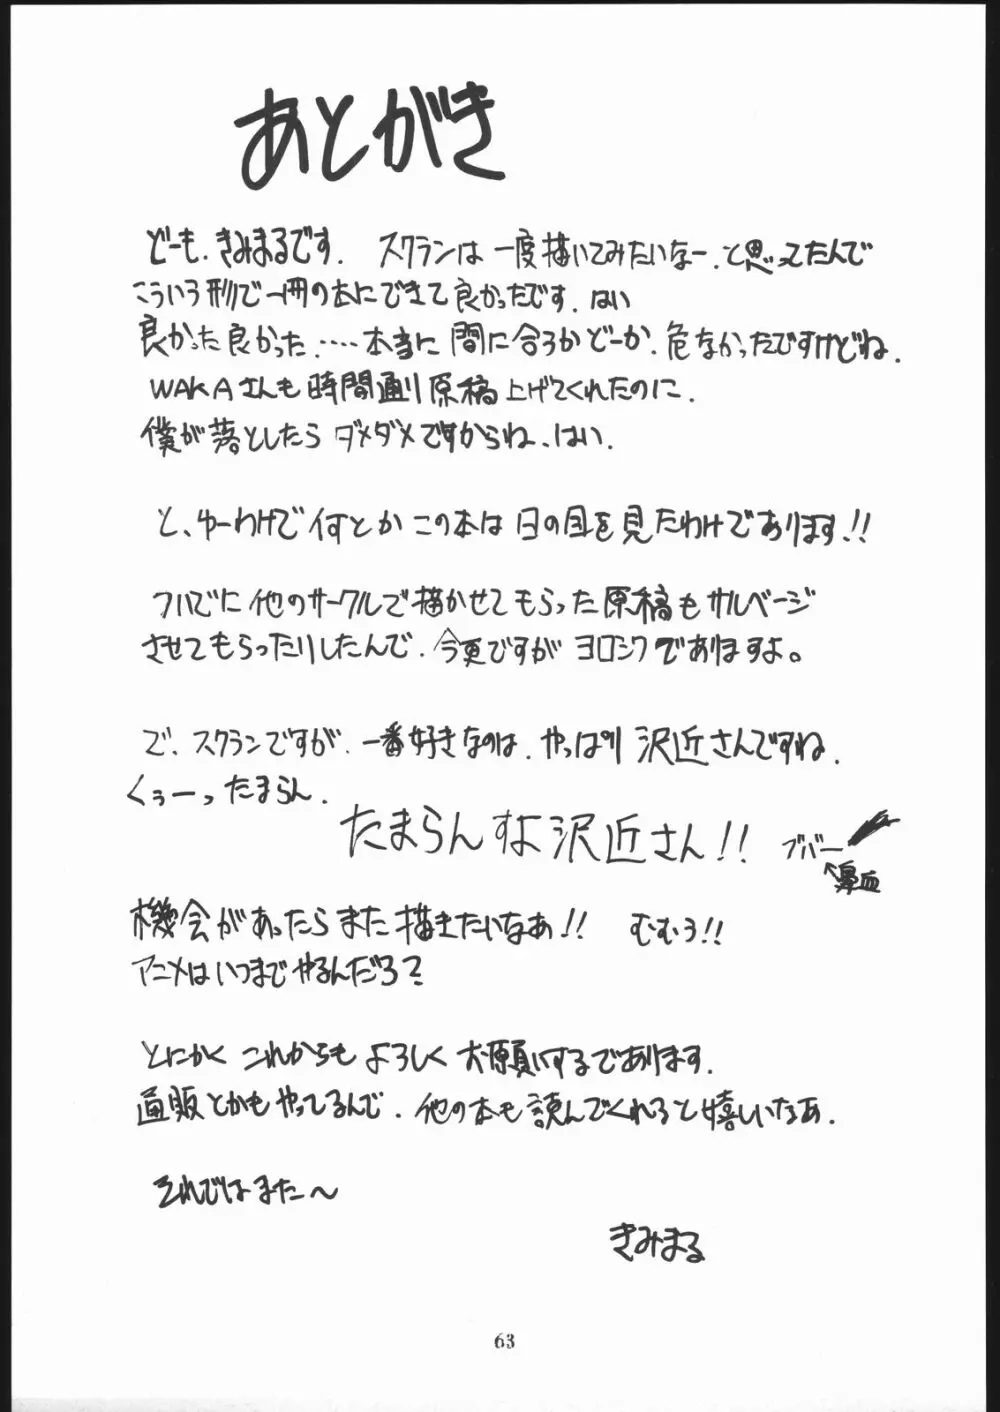 あとがき
どーも、きみまるです. スクランは一度描いてみたいなー、と思ってたんで
こういう形で一冊の本にできて良かったです. はい
良かった良かった.‥‥本当に間に合うかどーか、危なかったですけどね.
WAKAさんも時間通り原稿上げてくれたのに.
僕が落としたらダメダメですからね、はい.
と、ゆーわけで何とかこの本は日の目を見たわけであります!!
ついでに他のサークルで描かせてもらった原稿もサルベージ
させてもらったりしたんで、今更ですがヨロシクでありますよ。
で、スクランですが、一番好きなのは、やっぱり沢近さんですね.
くぅーったまらん.
たまらんすよ沢近さん!! ブバー
↑鼻血
機会があったらまた描きたいなあ!! むむう!!
アニメはいつまでやるんだろ?
とにかくこれからもよろしくお願いするであります.
通販とかもやってるんで、他の本も読んでくれると嬉しいなあ.
それではまた～
きみまる
63